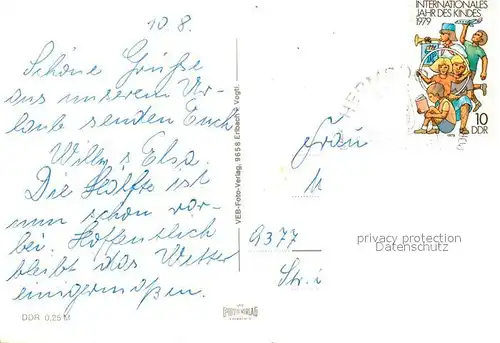 10. 8.
Schöne Grüße
aus unserem Ur-
laub senden Euch
Willy u Elsa.
Die Hälfte ist
nun schon vor-
bei. Hoffentlich
bleibt das Wetter
einigermaßen.
DDR 0,25 M
VEB-Foto-Verlag, 9658 Erlbach i. Vogtl.
INTERNATIONALES
JAHR DES KINDES
1979
10
DDR
Frau
9377
Str.
privacy protection
Datenschutz